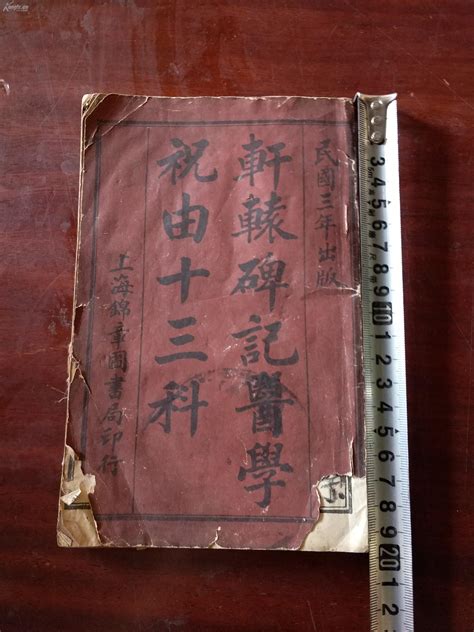 民國三年出版
軒轅碑記醫學
祝由十三科
上海錦章圖書局印行
3 4 5 6 7 8 9 10 1 2 3 4 5 6 7 8 9 20 1 2
5m